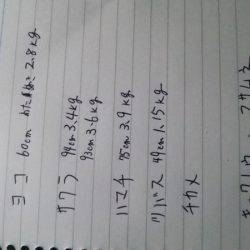 ヨコ 60cm 2.8kg
サワラ 94cm 3.4kg
93cm 3.6kg
ハマチ 75cm 3.9kg
ツバス 49cm 1.15kg
チカメ